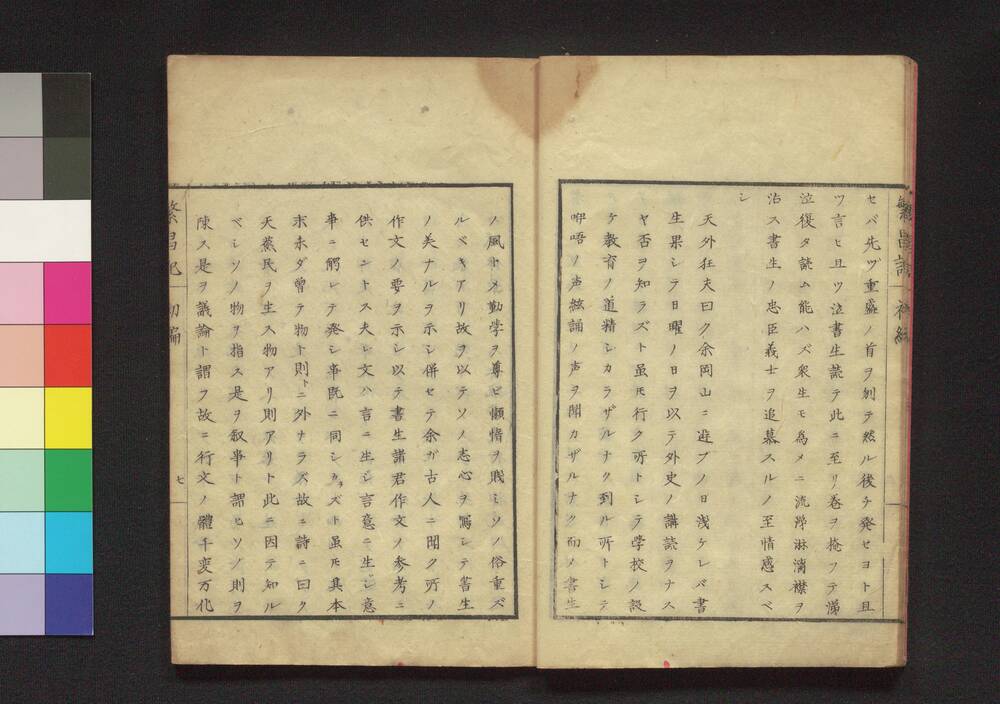 セバ先ヅ重盛ノ首ヲ刎テ然ル後チ発セヨト且
ツ言ヒ且ツ泣書生読テ此ニ至リ巻ヲ掩フテ涕
泣復タ読ム能ハズ衆生モ為メニ流涕淋漓襟ヲ
沾ス書生ノ忠臣義士ヲ追慕スルノ至情感スベ
シ
天外狂夫曰ク余岡山ニ遊ブノ日浅ケレバ書
生果シテ日曜ノ日ヲ以テ外史ノ講読ヲナス
ヤ否ヲ知ラズト虽モ行ク所トシテ学校ノ設
ケ教育ノ道精シカラザルナク到ル所トシテ
咿唔ノ声絃誦ノ声ヲ聞カザルナク而メ書生
ノ風トメ勤学ヲ尊ビ懶惰ヲ賎ミソノ俗重ズ
ルベキアリ故ヲ以テソノ志心ヲ写シテ書生
ノ美ナルヲ示シ併セテ余ガ古人ニ聞ク所ノ
作文ノ要ヲ示シ以テ書生諸君作文ノ参考ニ
供セントス夫レ文ハ言ニ生シ言意ニ生シ意
事ニ觸レテ発シ事既ニ同シカラズト虽モ其本
末未ダ曽テ物ト則トニ外ナラズ故ニ詩ニ曰ク
天蒸民ヲ生ス物アリ則アリト此ニ因テ知ル
ベシソノ物ヲ指ス是ヲ叙事ト謂ヒソノ則ヲ
陳ス是ヲ議論ト謂フ故ニ行文ノ體千変万化
繁昌記 初編
七